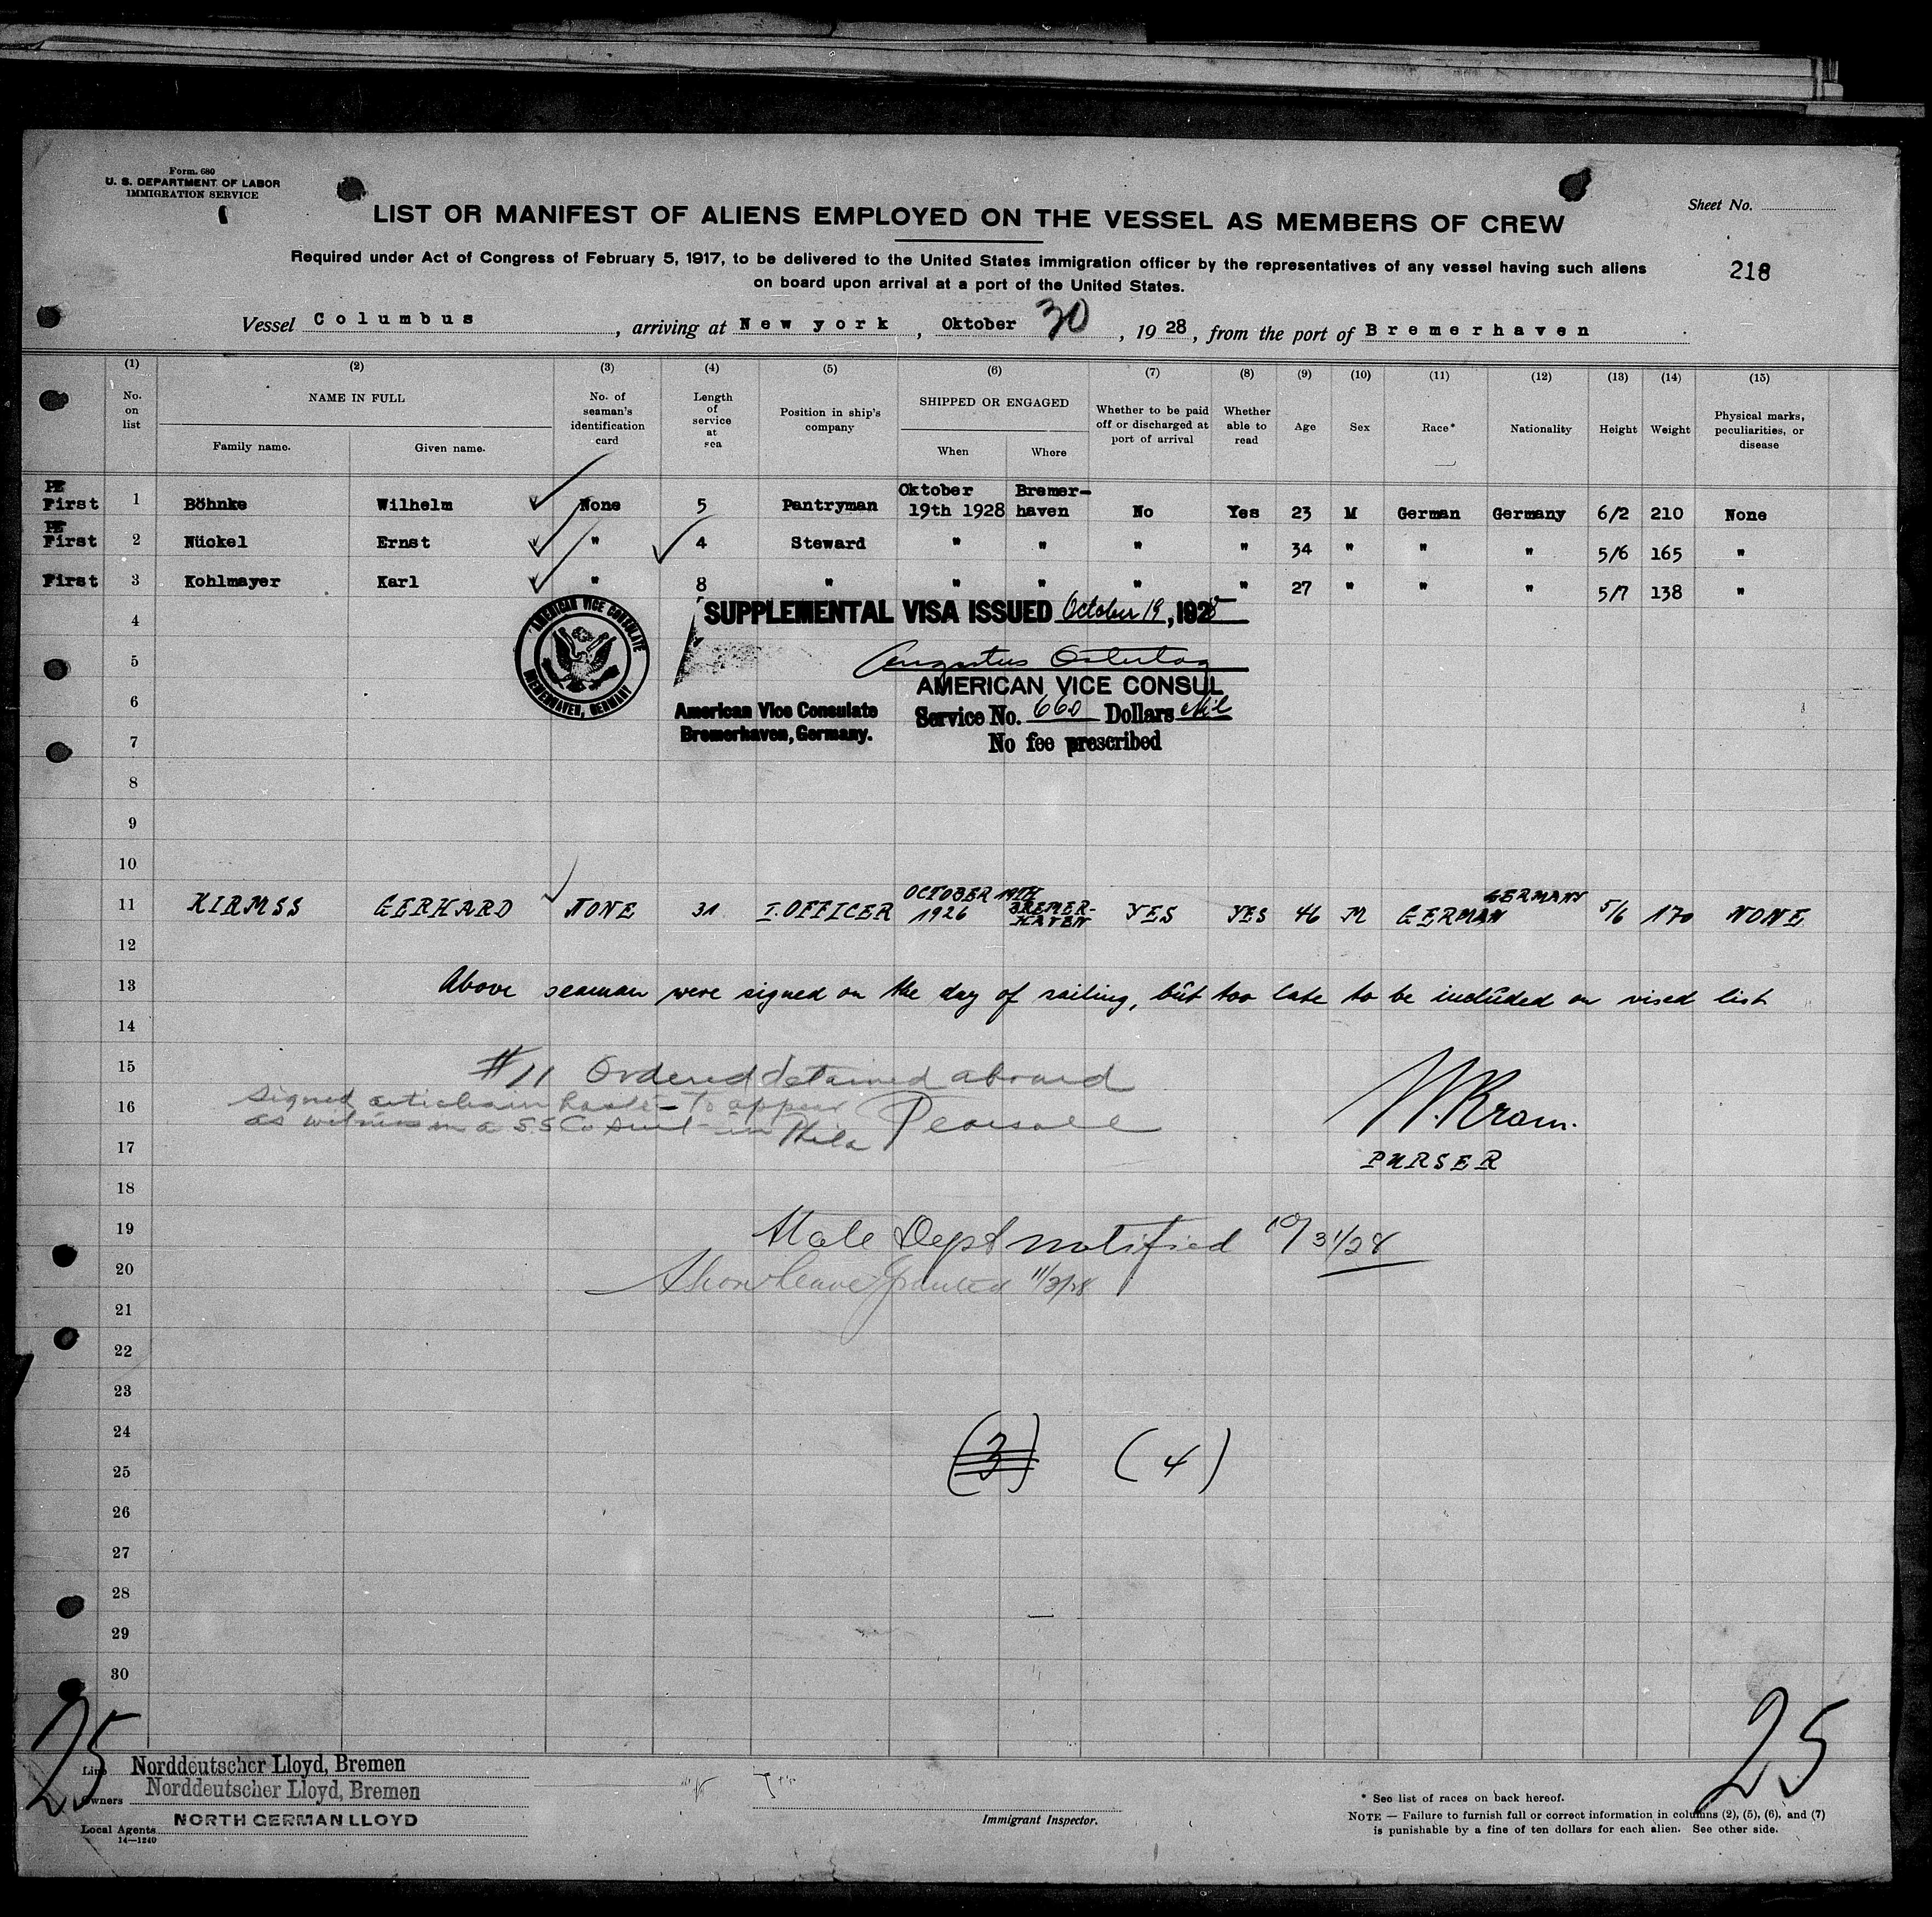 Form. 680
U. S. DEPARTMENT OF LABOR
IMMIGRATION SERVICE
LIST OR MANIFEST OF ALIENS EMPLOYED ON THE VESSEL AS MEMBERS OF CREW
Sheet No.
Required under Act of Congress of February 5, 1917, to be delivered to the United States immigration officer by the representatives of any vessel having such aliens
on board upon arrival at a port of the United States.
218
Vessel Columbus, arriving at New york, Oktober 30, 1928, from the port of Bremerhaven
(1) (2) (3) (4) (5) (6) (7) (8) (9) (10) (11) (12) (13) (14) (15)
No. on list NAME IN FULL Family name. Given name. No. of seaman's identification card Length of service at sea Position in ship's company SHIPPED OR ENGAGED When Where Whether to be paid off or discharged at port of arrival Whether able to read Age Sex Race* Nationality Height Weight Physical marks, peculiarities, or disease
First 1 Böhnke Wilhelm None 5 Pantryman Oktober 19th 1928 Bremer-haven No Yes 23 M German Germany 6/2 210 None
First 2 Nückel Ernst " 4 Steward " " " " 34 " " " 5/6 165 "
First 3 Kohlmayer Karl " 8 " " " " " 27 " " " 5/7 138 "
4
SUPPLEMENTAL VISA ISSUED October 19, 1928
AMERICAN VICE CONSULATE
BREMERHAVEN, GERMANY
5
Augustus Ostertag
AMERICAN VICE CONSUL
6
American Vice Consulate
Bremerhaven, Germany.
Service No. 660 Dollars Nil
7
No fee prescribed
8
9
10
11 KIRMSS GERHARD NONE 31 I. OFFICER OCTOBER 19TH 1926 BREMER-HAVEN YES YES 46 M GERMAN GERMANY 5/6 170 NONE
12
13 Above seaman were signed on the day of sailing, but too late to be included on vised list
14
15 #11 Ordered detained aboard
16 Signed to appear
as witness in a S.S. Co suit in Phila
Pearsall
W. Kram.
17
PURSER
18
19 State Dept notified 10/31/28
20 Shore leave granted 11/3/28
21
22
23
24
(3) (4)
25
26
27
28
29
30
25
25
Line Norddeutscher Lloyd, Bremen
Owners Norddeutscher Lloyd, Bremen
Local Agents NORTH GERMAN LLOYD
14—1240
Immigrant Inspector.
* See list of races on back hereof.
NOTE — Failure to furnish full or correct information in columns (2), (5), (6), and (7)
is punishable by a fine of ten dollars for each alien. See other side.